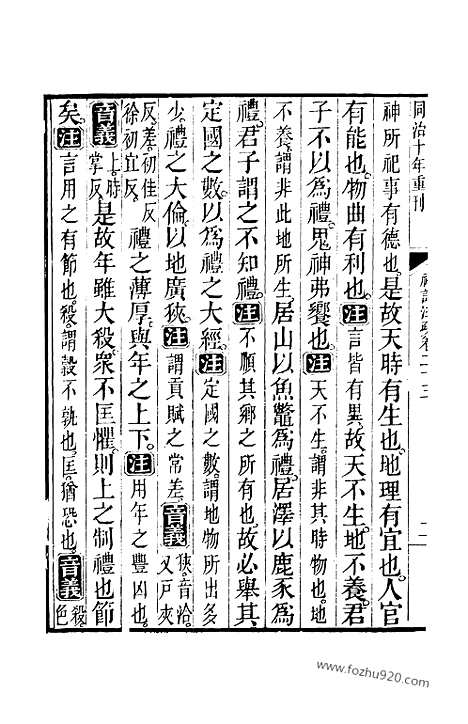 同治十年重刊
禮記注疏卷二十三
神所祀事有德也是故天時有生也地理有宜也人官
有能也物曲有利也注言皆有異故天不生地不養君
子不以爲禮鬼神弗饗也注天不生謂非其時物也地
不養謂非此地所生居山以魚鼈爲禮居澤以鹿豕爲
禮君子謂之不知禮注不順其鄉之所有也故必舉其
定國之數以爲禮之大經注定國之數謂地物所出多
少禮之大倫以地廣狹注謂貢賦之常差音義狹音洽又戸夾
反差初佳反徐初宜反禮之薄厚與年之上下注用年之豐凶也
音義上時掌反是故年雖大殺衆不匡懼則上之制禮也節
矣注言用之有節也殺謂穀不孰也匡猶恐也音義殺色
www.fozhu920.com